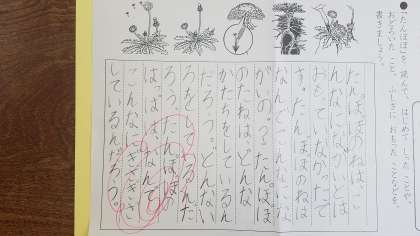 ●「たんぽぽ」を読んで、はじめてしった ことや、
おどろいた こと、ふしぎに おもった ことなどを、
書きましょう。
たんぽぽのねは、こ
んなにながいとは
おもっていなかったで
す。たんぽぽのねは
なんでこんなにな
がいの。?たんぽぽ
のたねは、どんな
かたちをしているん
だろう。どんない
ろをしてるんだ
ろう。たんぽぽの
はっぱはなんで
こんなにぎざぎざ
しているんだろう。